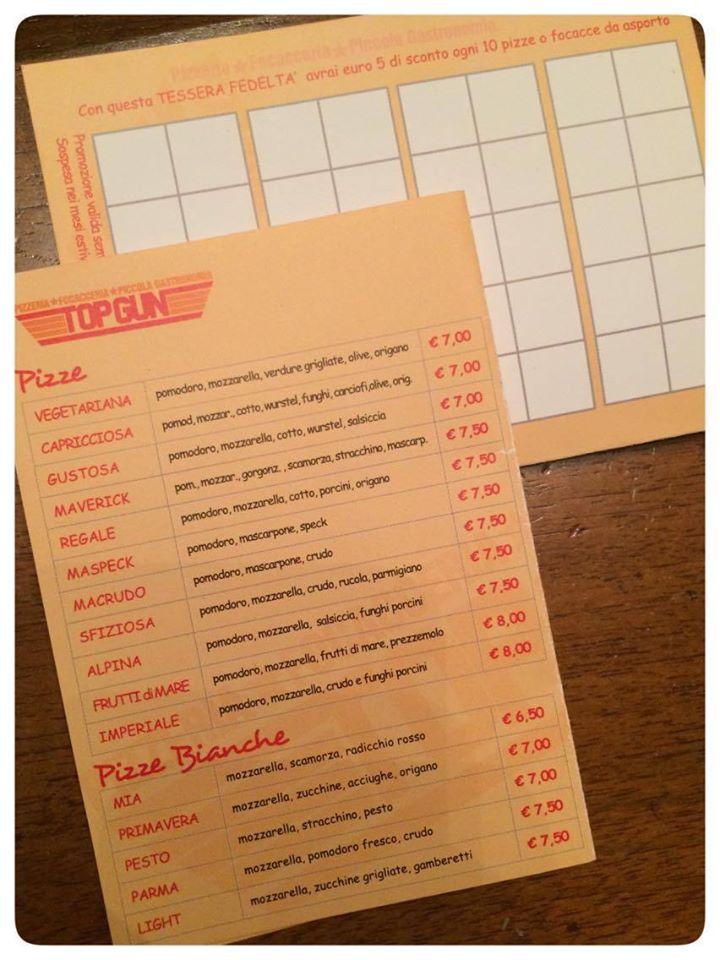 Pizzeria ★ Focacceria ★ Piccola Gastronomia
Con questa TESSERA FEDELTA' avrai euro 5 di sconto ogni 10 pizze o focacce da asporto
Promozione valida sem
Sospesa nei mesi estiv
PIZZERIA ★ FOCACCERIA ★ PICCOLA GASTRONOMIA
TOP GUN
Pizze
VEGETARIANA pomodoro, mozzarella, verdure grigliate, olive, origano € 7,00
CAPRICCIOSA pomod, mozzar., cotto, wurstel, funghi, carciofi,olive, orig. € 7,00
GUSTOSA pomodoro, mozzarella, cotto, wurstel, salsiccia € 7,00
MAVERICK pom., mozzar., gorgonz. , scamorza, stracchino, mascarp. € 7,50
REGALE pomodoro, mozzarella, cotto, porcini, origano € 7,50
MASPECK pomodoro, mascarpone, speck € 7,50
MACRUDO pomodoro, mascarpone, crudo € 7,50
SFIZIOSA pomodoro, mozzarella, crudo, rucola, parmigiano € 7,50
ALPINA pomodoro, mozzarella, salsiccia, funghi porcini € 7,50
FRUTTI di MARE pomodoro, mozzarella, frutti di mare, prezzemolo € 8,00
IMPERIALE pomodoro, mozzarella, crudo e funghi porcini € 8,00
Pizze Bianche
MIA mozzarella, scamorza, radicchio rosso € 6,50
PRIMAVERA mozzarella, zucchine, acciughe, origano € 7,00
PESTO mozzarella, stracchino, pesto € 7,00
PARMA mozzarella, pomodoro fresco, crudo € 7,50
LIGHT mozzarella, zucchine grigliate, gamberetti € 7,50